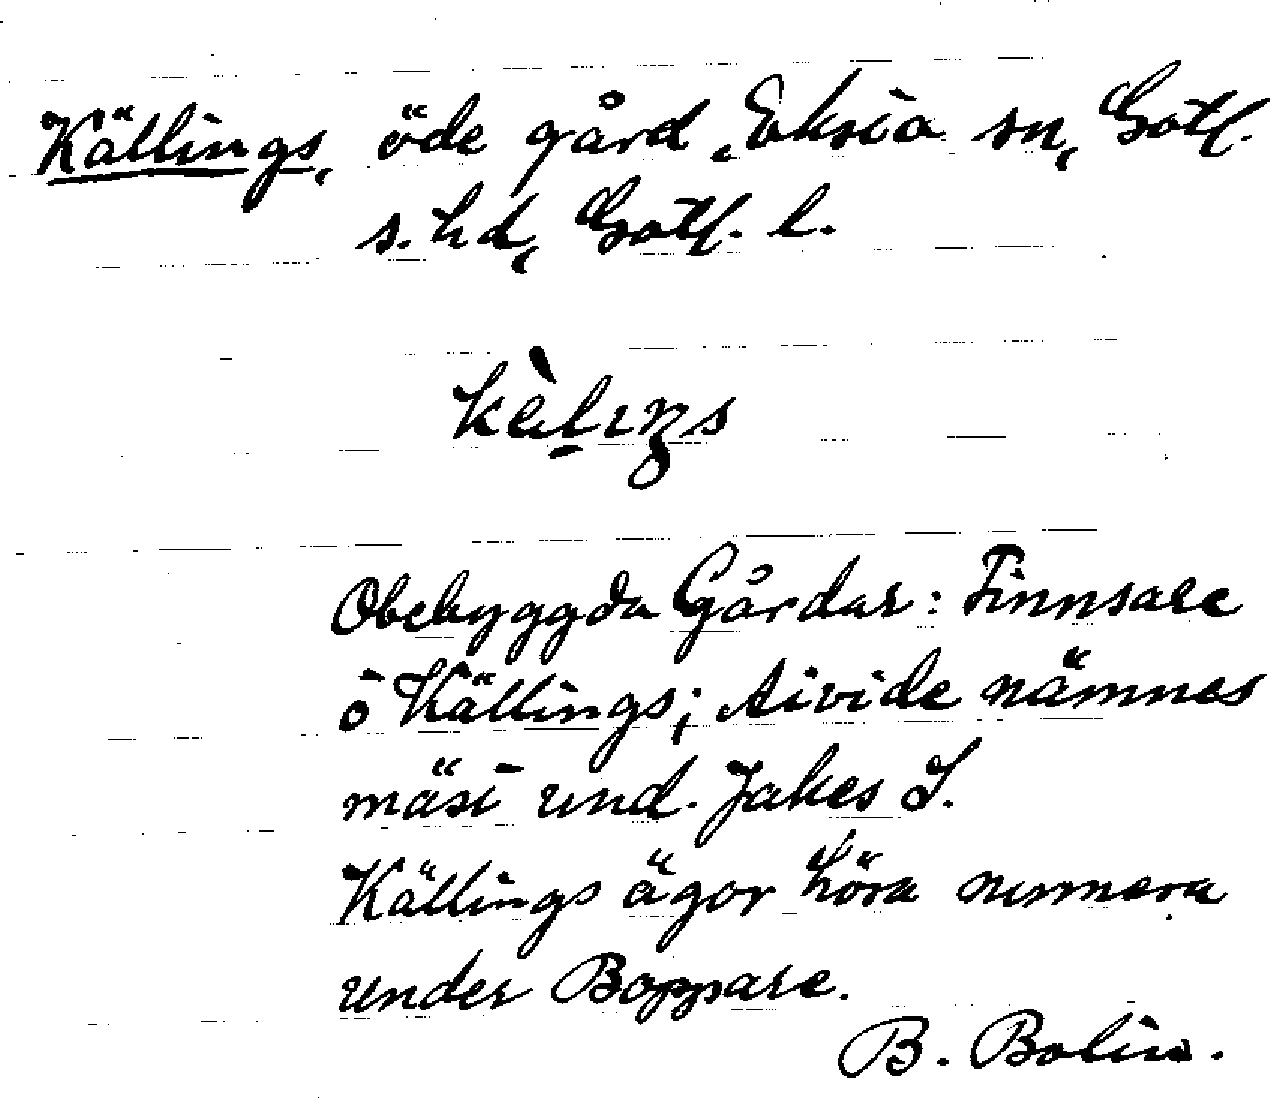 Källings, öde gård, Eksta sn, Gotl.
s. hd, Gotl. l.
kälıŋs
Obebyggda Gårdar: Finnsare
o Källings; Aivide nämnes
mäst und. Jakes I.
Källings ägor höra numera
under Boppare.
B. Bolin.